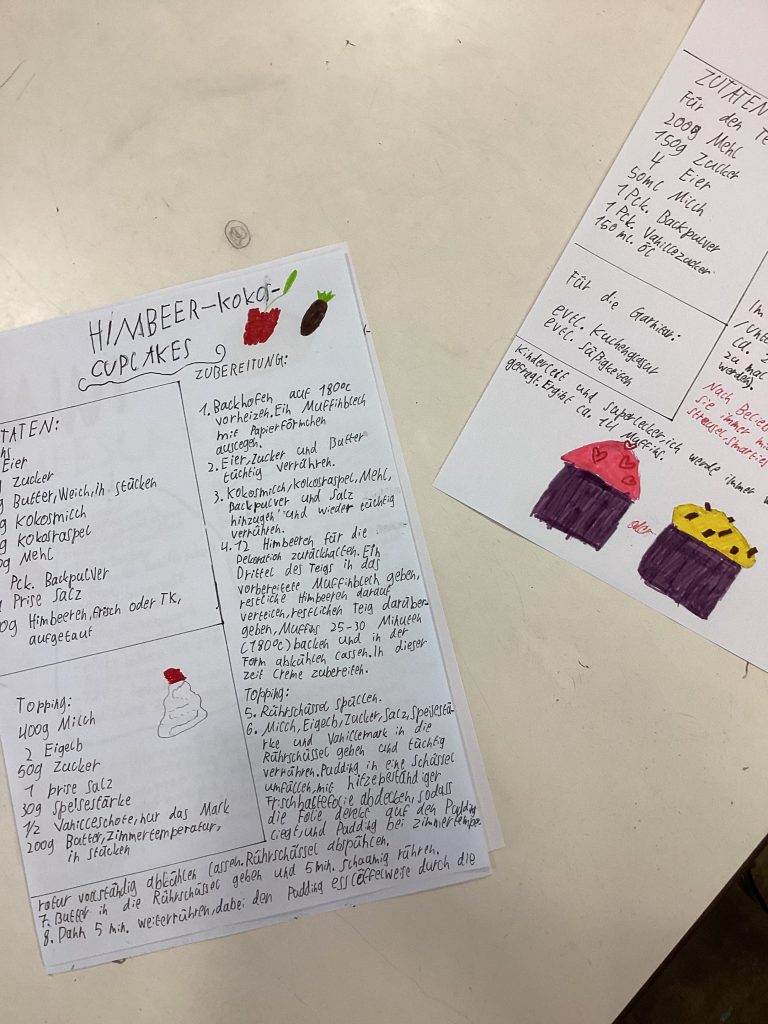 HIMBEER-KOKOS-
CUPCAKES
TATEN:
Eier
Zucker
Butter, Weich, in stücken
Kokosmilch
Kokosraspel
Mehl
Pck. Backpulver
Prise Salz
Himbeeren, frisch oder TK,
aufgetaut
Topping:
400g Milch
2 Eigelb
50g Zucker
1 prise Salz
30g Speisestärke
1/2 Vanilleschote, nur das Mark
200g Butter, Zimmertemperatur,
in stücken
ZUBEREITUNG:
1. Backhofen auf 180°C
vorheizen. Ein Muffinblech
mit Papierförmchen
auslegen.
2. Eier, Zucker und Butter
tüchtig verrühren.
3. Kokosmilch, Kokosraspel, Mehl,
Backpulver und Salz
hinzugeh und wieder tüchtig
verrühren.
4. 12 Himbeeren für die
Dekoration zurückhalten. Ein
Drittel des Teigs in das
vorbereitete Muffinblech geben,
restliche Himbeeren darauf
verteilen, restlichen Teig darüber-
geben, Muffins 25-30 Minuten
(180°C) backen und in der
Form abkühlen lassen. In dieser
zeit Creme zubereiten.
Topping:
5. Rührschüssel spüllen.
6. Milch, Eigelb, Zucker, Salz, Speisestä-
rke und Vanillemark in die
Rührschüssel geben und tüchtig
verrühren. Pudding in eine Schüssel
umfüllen, mit hitzebeständiger
Frischhaltefolie abdecken, sodass
die Folie direkt auf den Pudding
liegt, und Pudding bei zimmertempe
ratur vollständig abkühlen lassen. Rührschüssel abspühlen.
7. Butter in die Rührschüssel geben und 5 min. schaumig rühren.
8. Dann 5 min. weiterrühren, dabei den Pudding esslöffelweise durch die
ZUTATEN
Für den Te
200g Mehl
150g Zucker
4 Eier
50ml Milch
1 Pck. Backpulver
1 Pck. Vanillezucker
150 ml. Öl
Für die Garnitur:
evtl. Kuchenglasur
evtl. Süßigkeiten
Im
/Unter
ca. 2
zu mal
werden)
Nach Belieb
sie immer mi
streusel, smarties
Kinderleit und superlecker, ich werde immer w
gefragt. Ergibt ca. 14 Muffins.
oder